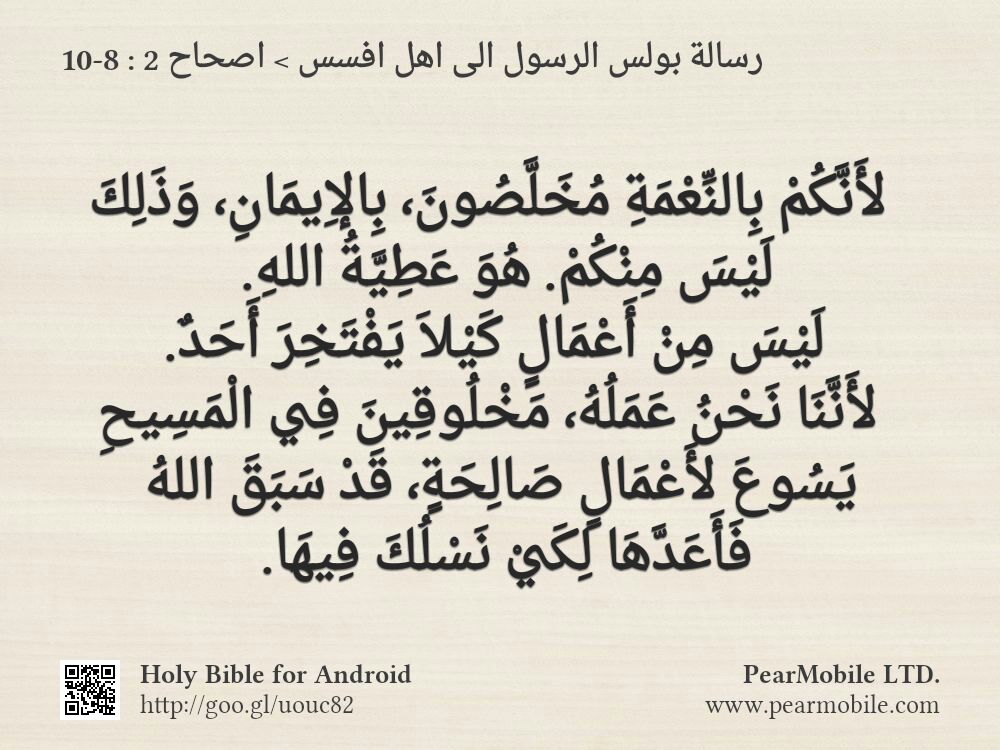 رسالة بولس الرسول الى اهل افسس > اصحاح 2 : 8-10
لأَنَّكُمْ بِالنِّعْمَةِ مُخَلَّصُونَ، بِالإِيمَانِ، وَذَلِكَ
لَيْسَ مِنْكُمْ. هُوَ عَطِيَّةُ اللهِ.
لَيْسَ مِنْ أَعْمَالٍ كَيْلاَ يَفْتَخِرَ أَحَدٌ.
لأَنَّنَا نَحْنُ عَمَلُهُ، مَخْلُوقِينَ فِي الْمَسِيحِ
يَسُوعَ لأَعْمَالٍ صَالِحَةٍ، قَدْ سَبَقَ اللهُ
فَأَعَدَّهَا لِكَيْ نَسْلُكَ فِيهَا.
Holy Bible for Android
http://goo.gl/uouc82
PearMobile LTD.
www.pearmobile.com